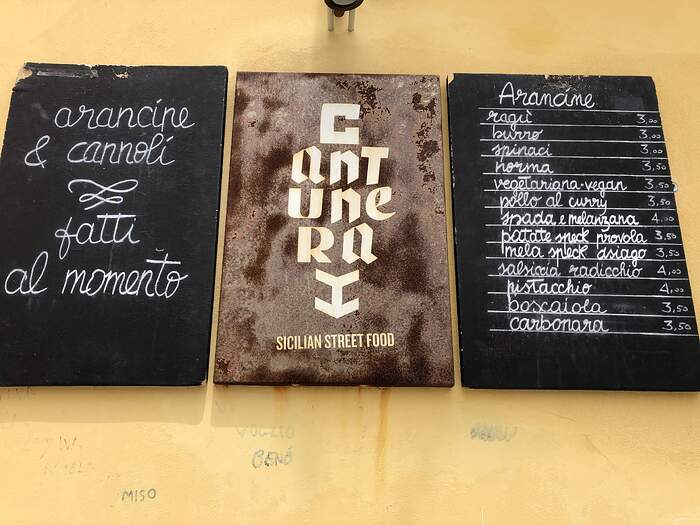 arancine
& cannoli
fatti
al momento
C
anT
Une
Ra
I
SICILIAN STREET FOOD
Arancine
ragù 3,00
burro 3,00
spinaci 3,00
norma 3,50
vegetariana-vegan 3,50
pollo al curry 3,50
spada e melanzana 4,00
patate speck provola 3,50
mela speck asiago 3,50
salsiccia radicchio 4,00
pistacchio 4,00
boscaiola 3,50
carbonara 3,50
MISO